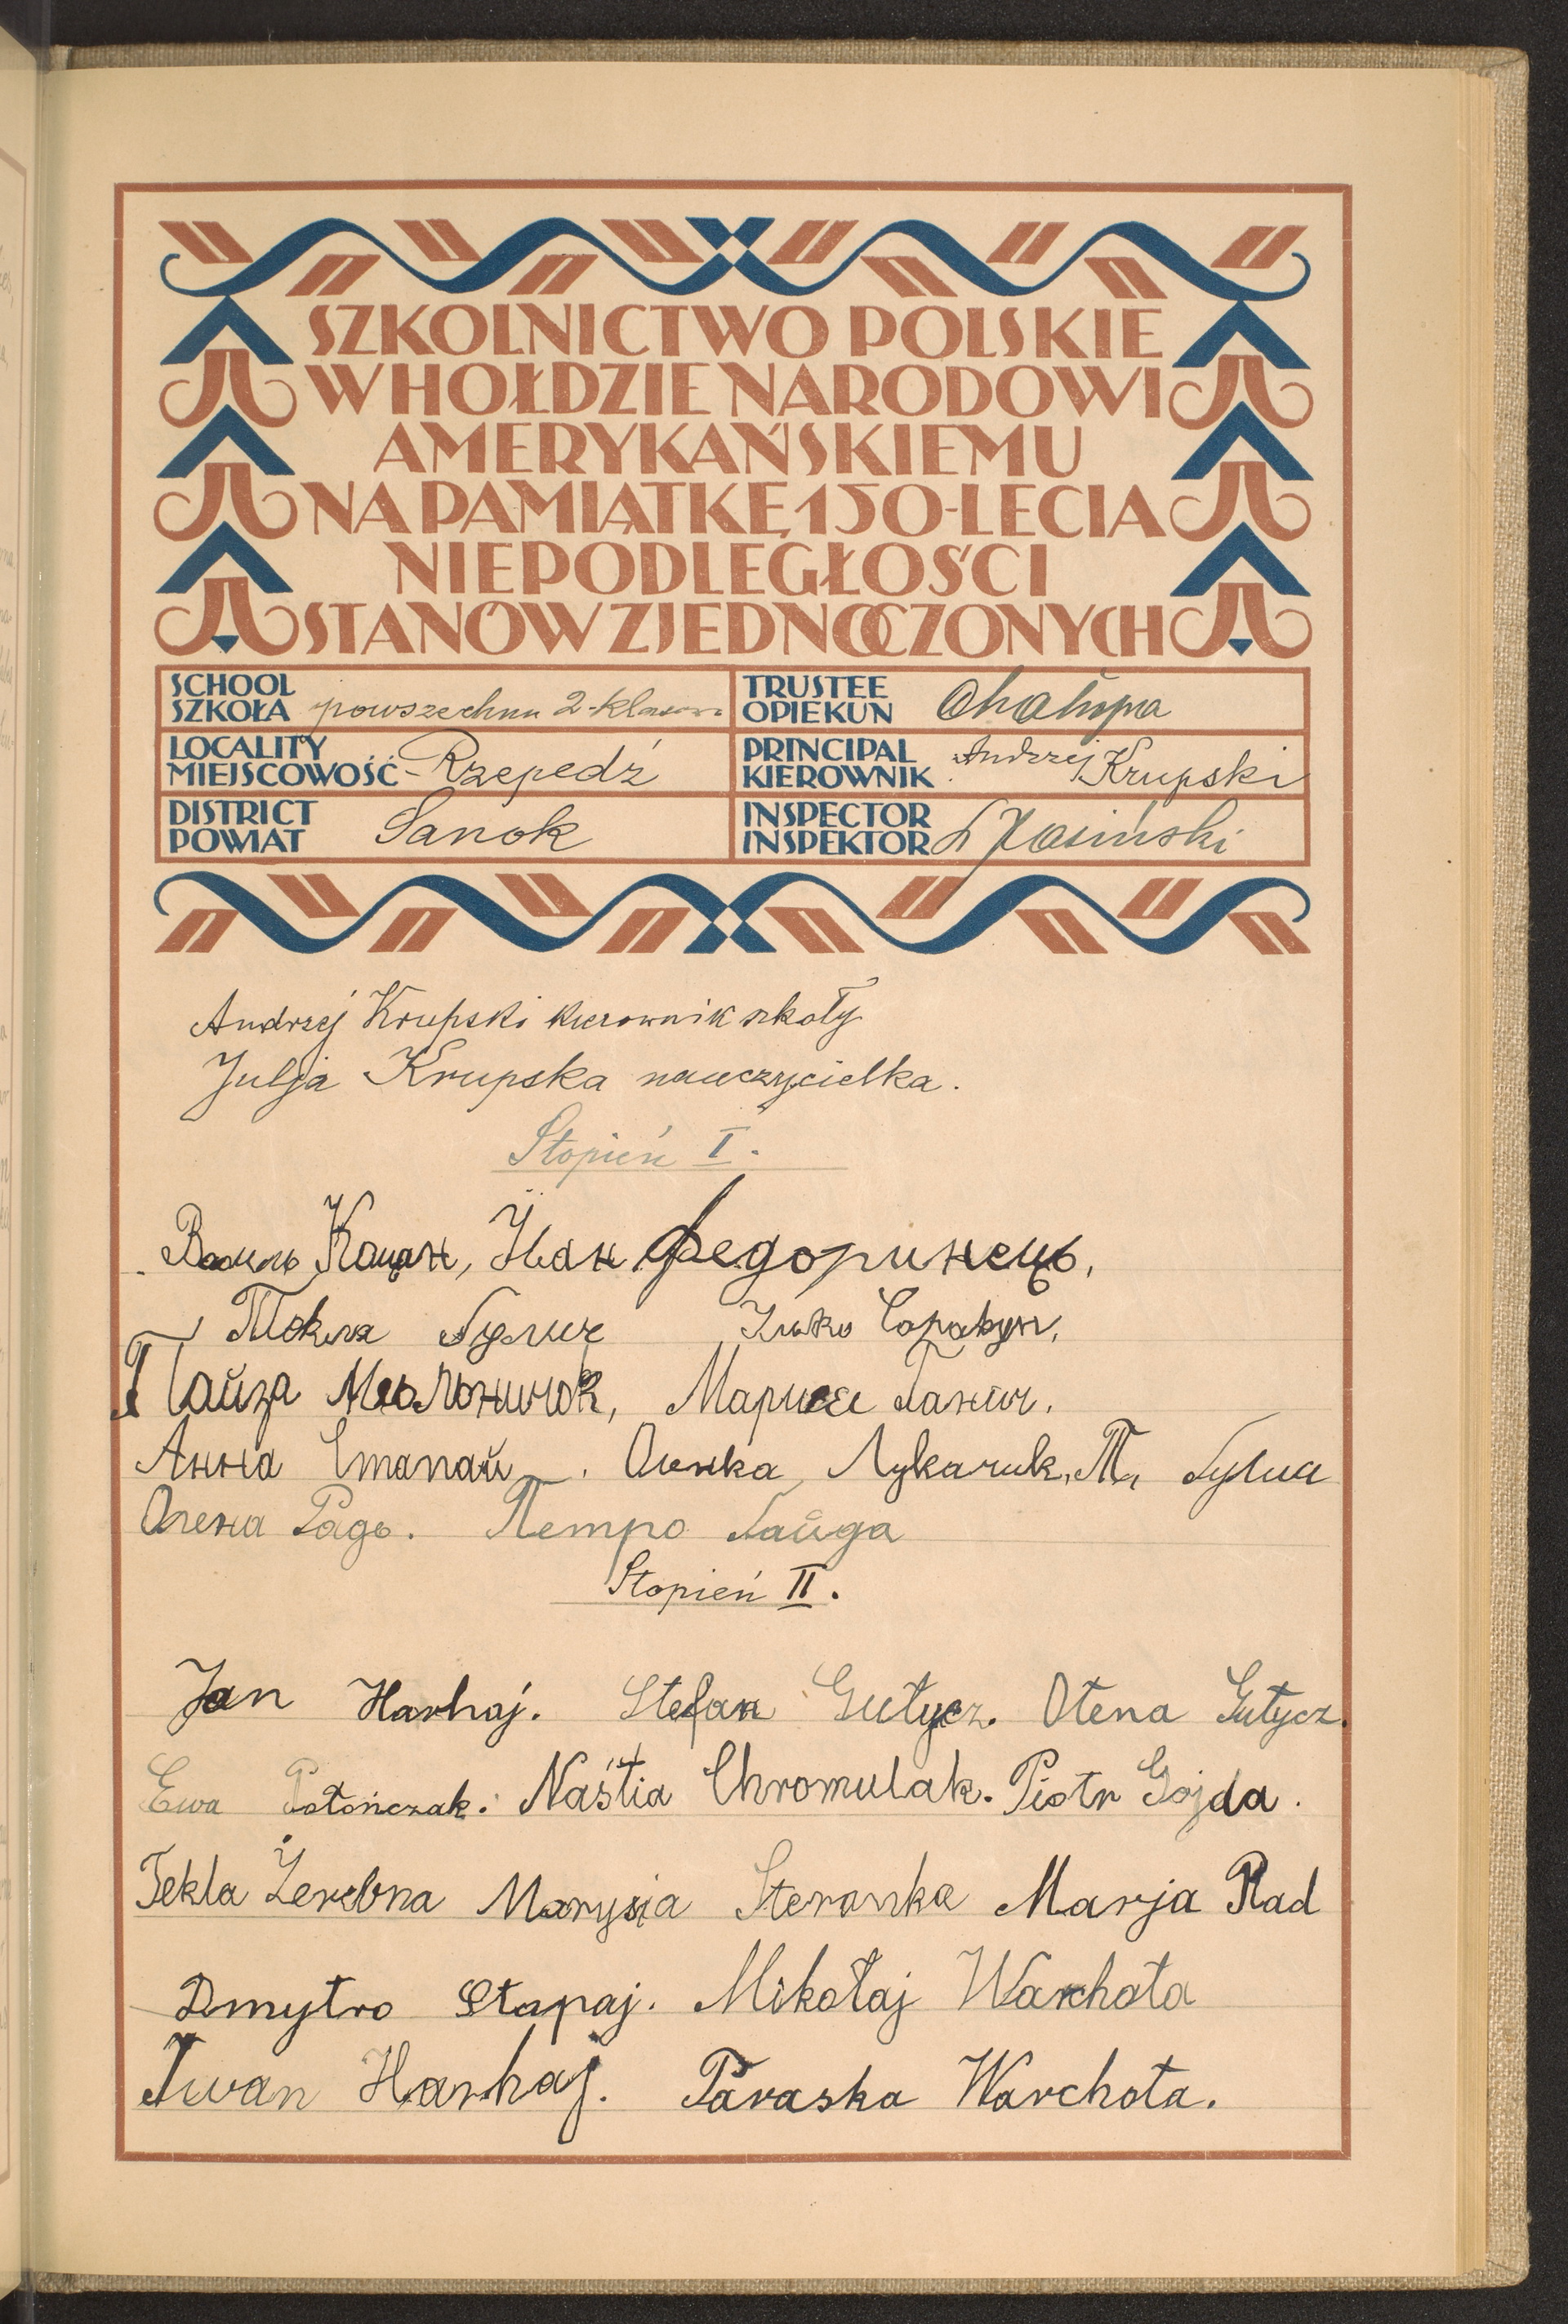 SZKOLNICTWO POLSKIE
W HOŁDZIE NARODOWI
AMERYKAŃSKIEMU
NA PAMIĄTKĘ 150-LECIA
NIEPODLEGŁOŚCI
STANÓW ZJEDNOCZONYCH
SCHOOL
SZKOŁA powszechna 2-klasowa
TRUSTEE
OPIEKUN Chałupa
LOCALITY
MIEJSCOWOŚĆ - Rzepedź
PRINCIPAL
KIEROWNIK Andrzej Krupski
DISTRICT
POWIAT Sanok
INSPECTOR
INSPEKTOR Jasiński
Andrzej Krupski kierownik szkoły
Julja Krupska nauczycielka.
Stopień I.
Василь Кацан, Іван Федоринець,
Текля
Мельничок, Марися
Анна Стапай. Лукачик, П.
Олена Радь. Петро Гайда
Stopień II.
Jan Harhaj. Stefan Gułycz. Ołena Gułycz.
Ewa Połończak. Naśtia Chromulak. Piotr Gojda.
Tekla Żerebna Marysia Steranka Marja Rad
Dmytro Stapaj. Mikołaj Warchoła
Iwan Harhaj. Paraska Warchoła.